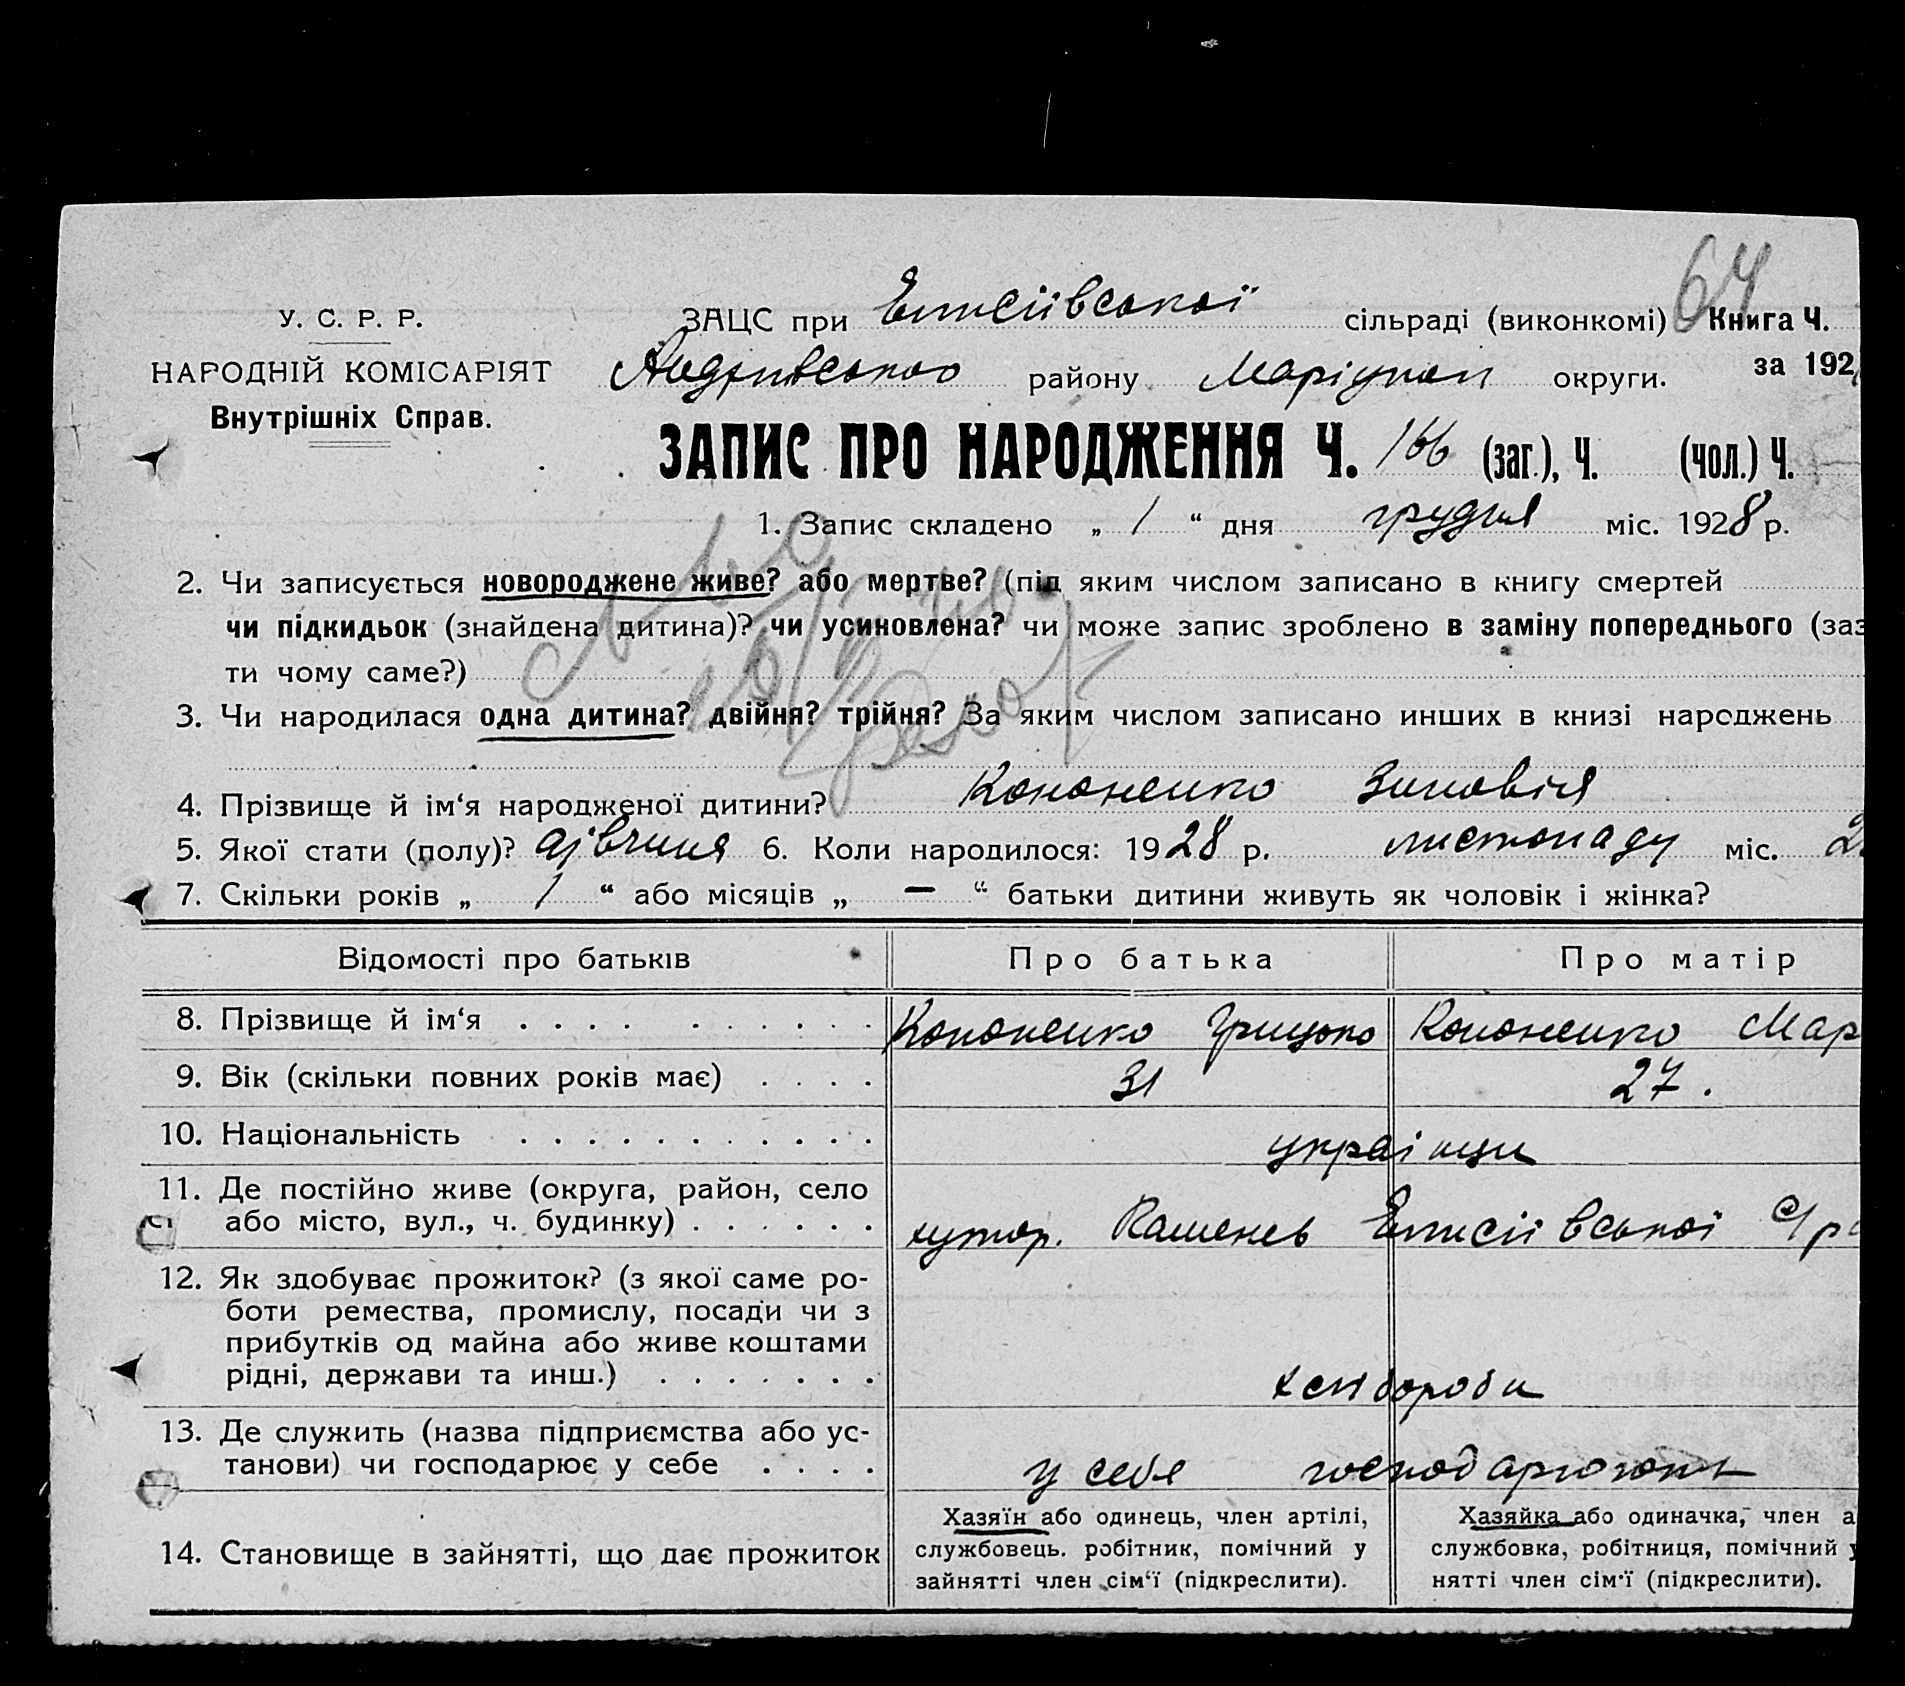 64
У. С. Р. Р.
НАРОДНІЙ КОМІСАРІЯТ
Внутрішніх Справ.
ЗАЦС при Єлисіївської сільраді (виконкомі) Книга Ч.
Андріївського району Маріупол округи. за 192
ЗАПИС ПРО НАРОДЖЕННЯ Ч. 166 (заг.), Ч. (чол.) Ч.
1. Запис складено „ 1 “ дня грудня міс. 1928 р.
2. Чи записується новороджене живе? або мертве? (під яким числом записано в книгу смертей
чи підкидьок (знайдена дитина)? чи усиновлена? чи може запис зроблено в заміну попереднього (заз
ти чому саме?)
3. Чи народилася одна дитина? двійня? трійня? За яким числом записано инших в книзі народжень
4. Прізвище й ім‘я народженої дитини? Кононенко Зиновія
5. Якої стати (полу)? дівчина 6. Коли народилося: 1928 р. листопаду міс. 2
7. Скільки років „ 1 “ або місяців „ — “ батьки дитини живуть як чоловік і жінка?
Відомості про батьків Про батька Про матір
8. Прізвище й ім‘я . . . . Кононенко Грицько Кононенко Мар
9. Вік (скільки повних років має) . . . . 31 27.
10. Національність . . . . українци
11. Де постійно живе (округа, район, село
або місто, вул., ч. будинку) . . . . . . хутор. Єлисіївської С/р
12. Як здобуває прожиток? (з якої саме ро-
боти ремества, промислу, посади чи з
прибутків од майна або живе коштами
рідні, держави та инш.) . . . . . . . хлібороби
13. Де служить (назва підприємства або ус-
танови) чи господарює у себе . . . . у себе господарюють
14. Становище в зайнятті, що дає прожиток
Хазяїн або одинець, член артілі,
службовець. робітник, помічний у
зайнятті член сім‘ї (підкреслити).
Хазяйка або одиначка, член а
службовка, робітниця, помічний у
нятті член сім‘ї (підкреслити).